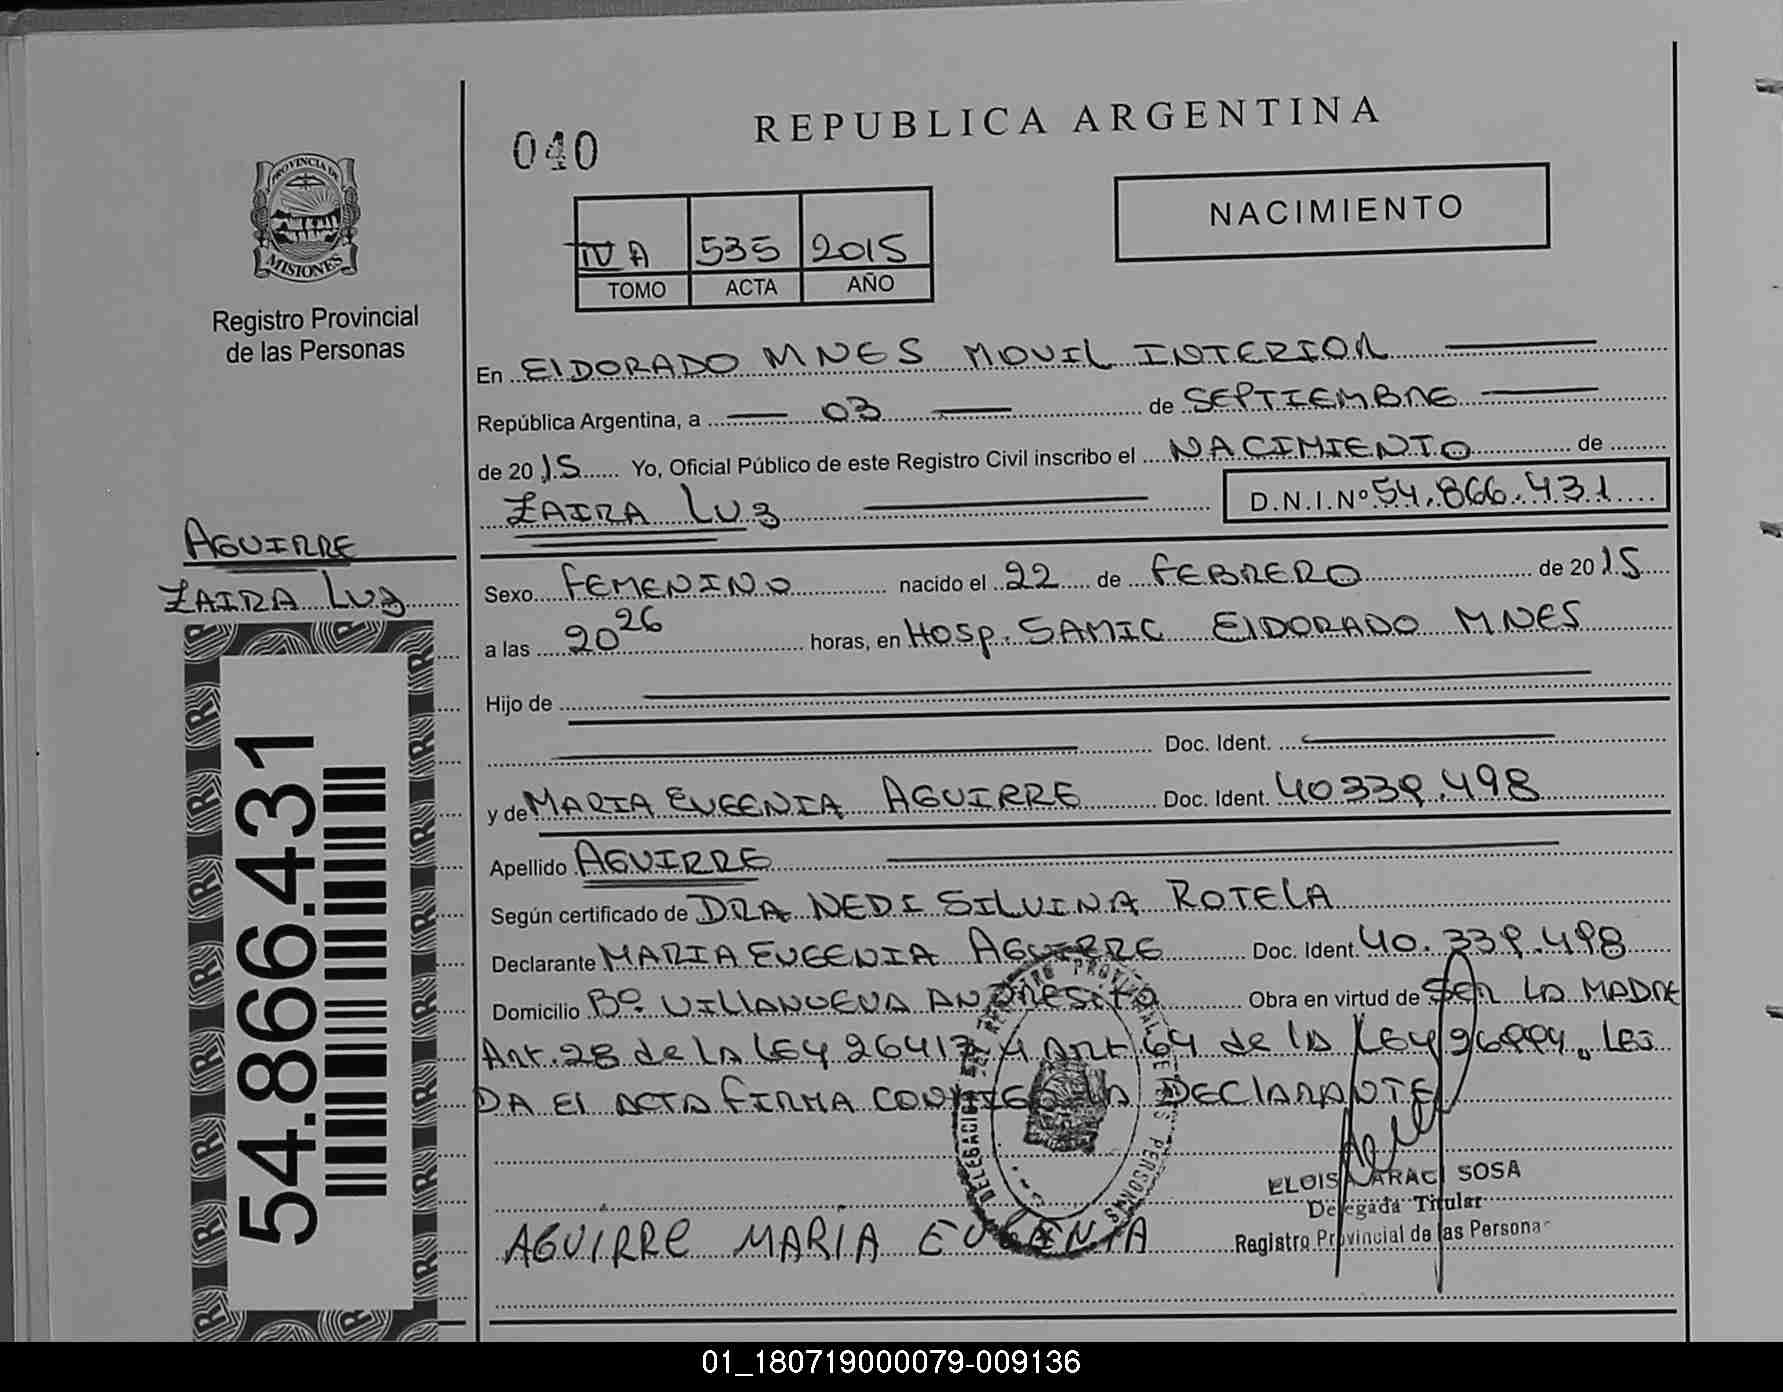 REPUBLICA ARGENTINA
040
NACIMIENTO
IV A 535 2015
TOMO ACTA AÑO
PROVINCIA DE
MISIONES
Registro Provincial
de las Personas
En ElDORADO MNES MOVIL INTERIOR
República Argentina, a 03 de SEPTIEMBRE
de 2015 Yo, Oficial Público de este Registro Civil inscribo el NACIMIENTO de
ZAIRA Luz D.N.I.Nº 54.866.431
AGUIRRE
ZAIRA Luz
Sexo FEMENINO nacido el 22 de FEBRERO de 2015
a las 20 26 horas, en Hosp. SAMIC ElDORADO MNES
Hijo de
Doc. Ident.
y de MARIA EUGENIA AGUIRRE Doc. Ident. 40339.498
Apellido AGUIRRE
Según certificado de DRA NEDI SILVINA ROTELA
Declarante MARIA EUGENIA AGUIRRE Doc. Ident. 40.339.498
Domicilio Bº VILLANUEVA ANDRESITO Obra en virtud de SER LA MADRE
Art. 28 de LA LEY 26413 Y ART 64 de la LEY 26994, LEI
DA El ACTA FIRMA CONMIGO LA DEClARANTE
54.866.431
DELEGACION REGISTRO PROVINCIAL DE LAS PERSONAS
ELOISA ARACI SOSA
Delegada Titular
Registro Provincial de las Personas
AGUIRRe MARIA EUGENIA
01_180719000079-009136